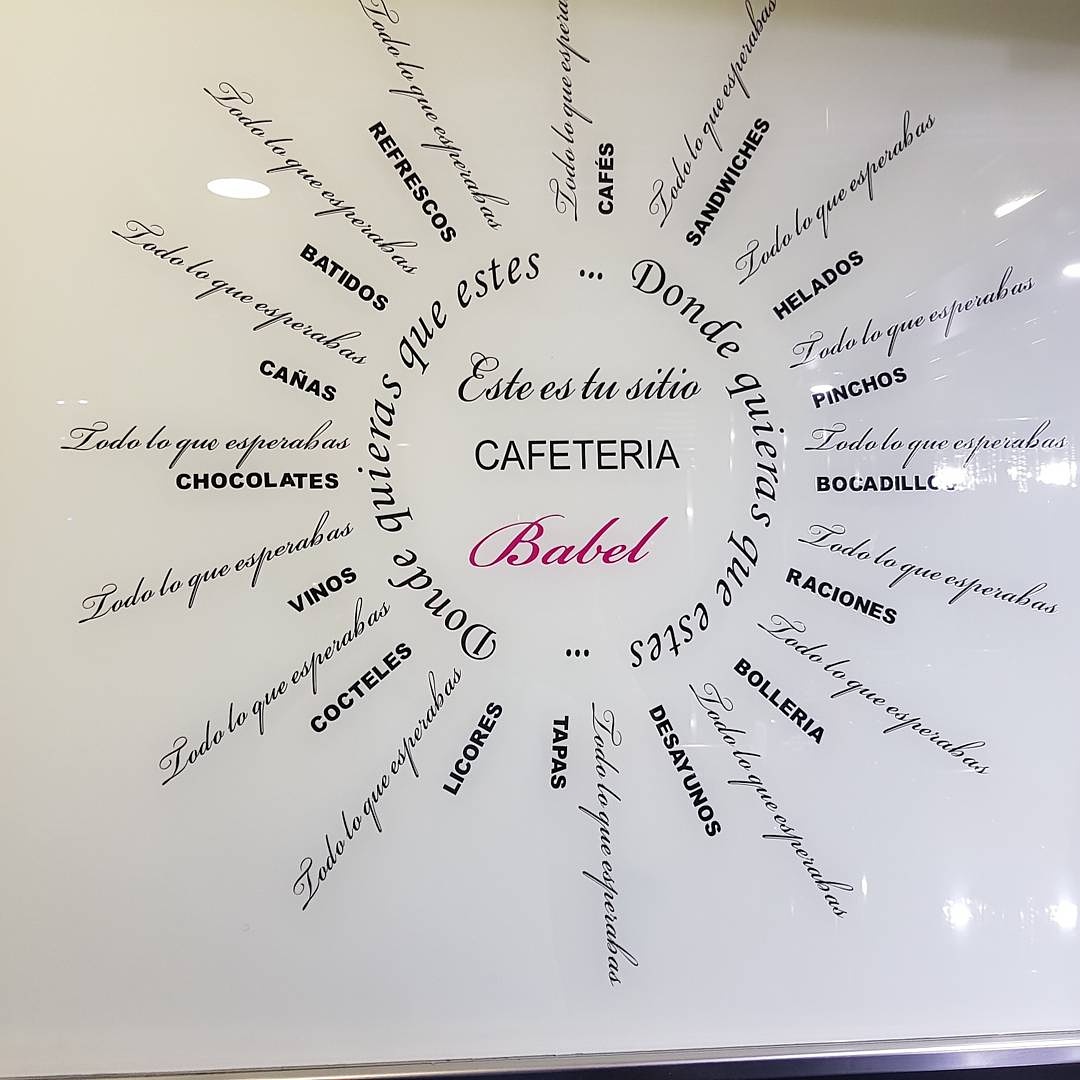 Este es tu sitio
CAFETERIA
Babel
Donde quieras que estes
...
Donde quieras que estes
...
Todo lo que espera
CAFÉS
Todo lo que esperabas
SANDWICHES
Todo lo que esperabas
HELADOS
Todo lo que esperabas
PINCHOS
Todo lo que esperabas
BOCADILLOS
Todo lo que esperabas
RACIONES
Todo lo que esperabas
BOLLERIA
Todo lo que esperabas
DESAYUNOS
Todo lo que esperabas
TAPAS
Todo lo que esperabas
LICORES
Todo lo que esperabas
COCTELES
Todo lo que esperabas
VINOS
Todo lo que esperabas
CHOCOLATES
Todo lo que esperabas
CAÑAS
Todo lo que esperabas
BATIDOS
Todo lo que esperabas
REFRESCOS